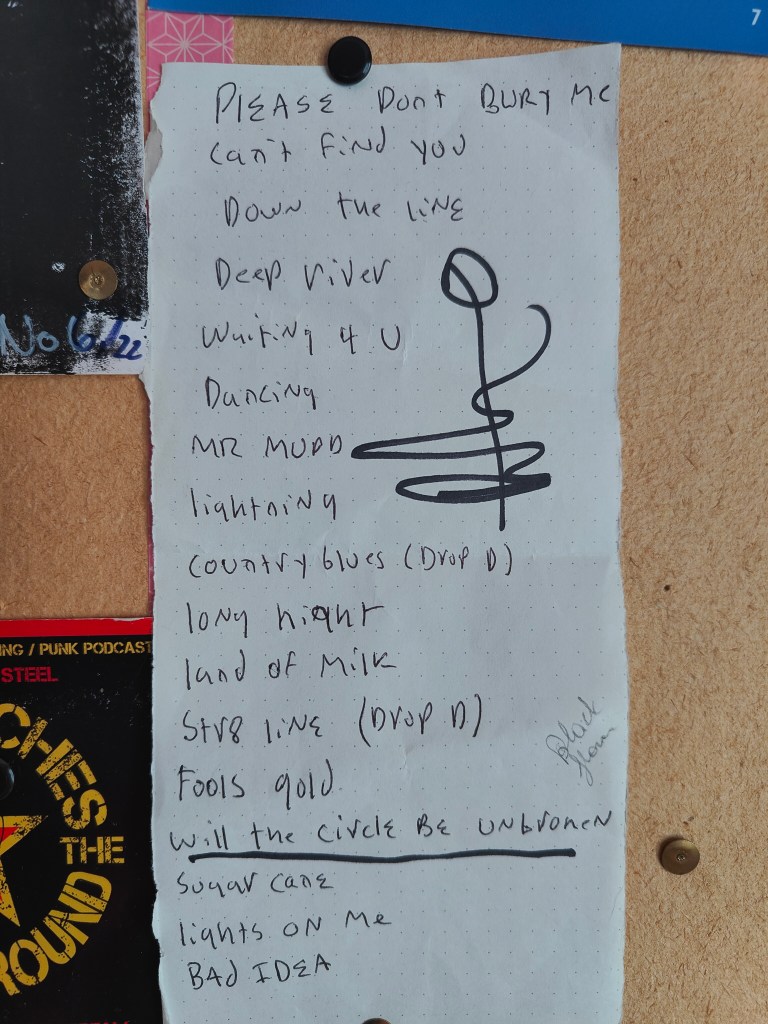 7
PLEASE Dont BURY Me
Can't find you
Down the LiNE
Deep river
Waiting 4 U
Dancing
MR MUDD
lightning
country blues (Drop D)
long night
land of Milk
Str8 liNE (Drop D)
Fools gold
Will the circle BE UNbroken
sugar cane
lights ON Me
BAd IDEA
No 6/22
ING / PUNK PODCAST
STEEL
CHES
THE
ROUND